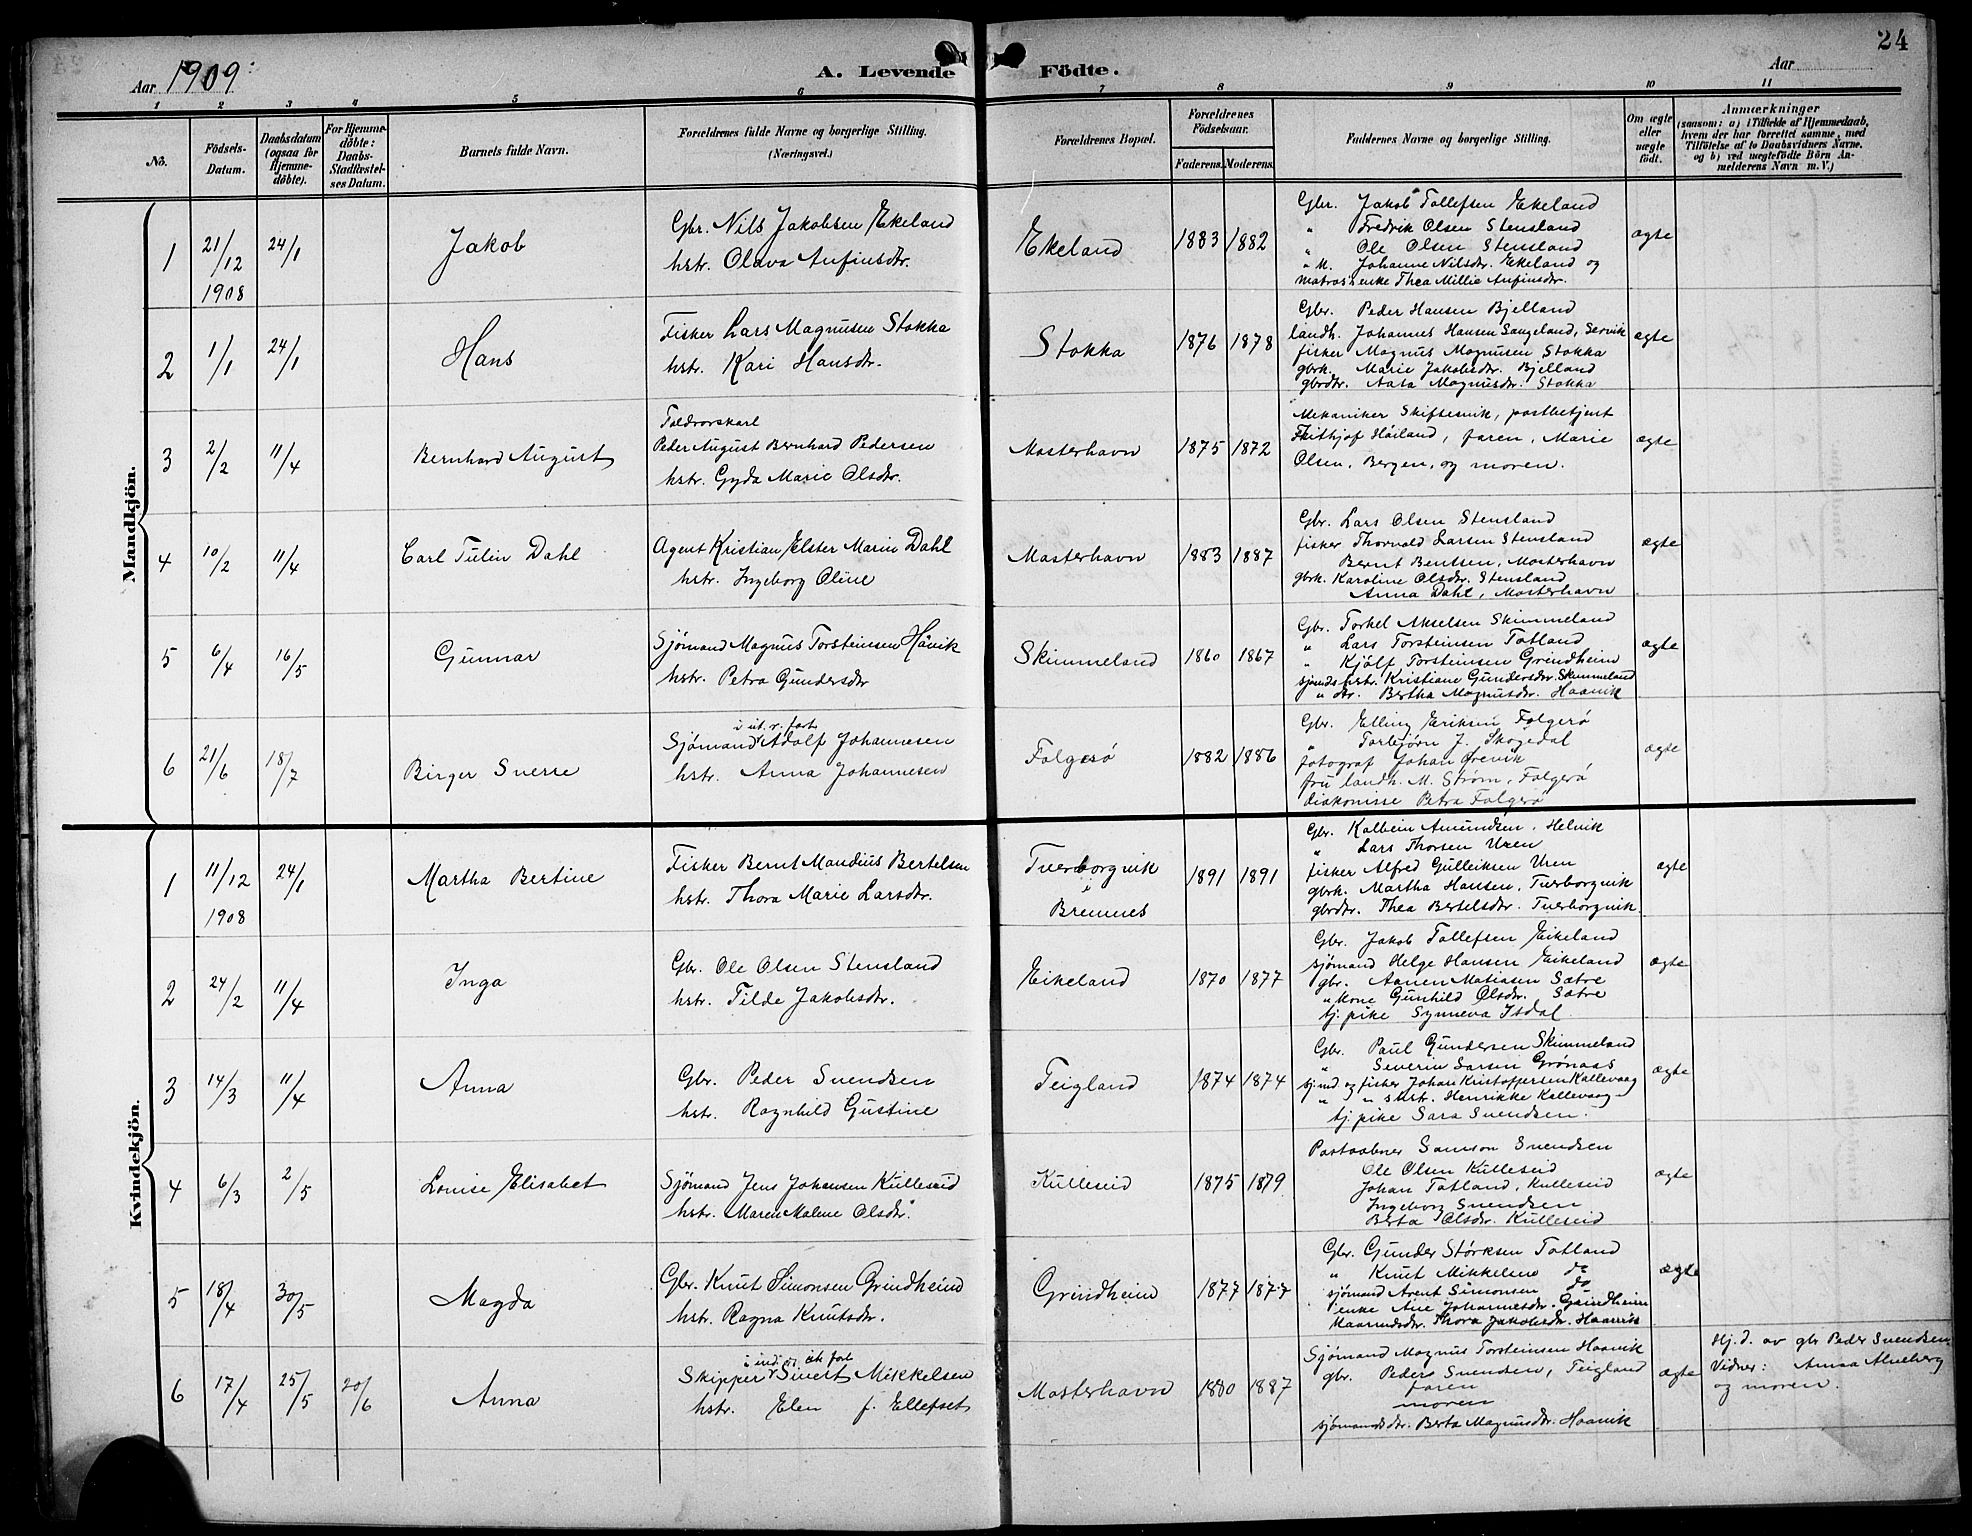 24
Aar 1909.
A. Levende Födte.
Aar
1 2 3 4 5 6 7 8 9 10 11
No.
Födsels-Datum.
Daabsdatum (ogsaa for Hjemmedöbte).
For Hjemmedöbte: Daabs-Stadfæstelses Datum.
Barnets fulde Navn.
Forældrenes fulde Navne og borgerlige Stilling. (Næringsvei.)
Forældrenes Bopæl.
Forældrenes Födselsaar.
Faderens. Moderens.
Faddernes Navne og borgerlige Stilling.
Om ægte eller uægte födt.
Anmærkninger
(saasom: a) i Tilfælde af Hjemmedaab, hvem der har forrettet samme, med Tilföielse af to Daabsvidners Navne. og b) ved uægtefödte Börn Anmelderens Navn m. V.)
Mandkjön.
1 21/12 1908 24/1 Jakob
Gbr. Nils Jakobsen Ekeland
hstr. Olava Anfinsdtr.
Ekeland 1883 1882
Gbr. Jakob Tollefsen Ekeland
" Fredrik Olsen Stensland
" Ole Olsen Stensland
" k. Johanne Nilsdtr. Ekeland og
matros enke Thea Millie Anfinsdtr.
ægte
2 1/1 24/1 Hans
Fisker Lars Magnusen Stokka
hstr. Kari Hansdtr.
Stokka 1876 1878
Gbr. Peder Hansen Bjelland
landh. Johannes Hansen Sangeland, Servik
fisker Magnus Magnusen Stokka
gbrk. Marie Jakobsdtr. Bjelland
gbrdtr. Aasa Magnusdtr. Stokka
ægte
3 2/2 11/4 Bernhard August
Toldrorskarl
Peder August Bernhard Pedersen
hstr. Gyda Marie Olsdtr.
Mosterhavn 1875 1872
Mekaniker Skiftesvik, postbetjent
Frithjof Høiland, faren, Marie
Olsen, Bergen, og moren.
ægte
4 10/2 11/4 Carl Tulin Dahl
Agent Kristian Elster Marin Dahl
hstr. Ingeborg Oline
Mosterhavn 1883 1887
Gbr. Lars Olsen Stensland
fisker Thorvald Larsen Stensland
Bernt Bentsen, Mosterhavn
gbrk. Karoline Olsdtr. Stensland
Anna Dahl, Mosterhavn
ægte
5 6/4 16/5 Gunnar
Sjømand Magnus Torsteinsen Håvik
hstr. Petra Gundersdtr
Skimmeland 1860 1867
Gbr. Torkel Akselsen Skimmeland
" Lars Torsteinsen Totland
" Kjölf Torsteinsen Grindheim
sjømds hstr. Kristiane Gundersdtr. Skimmeland
" dtr. Bertha Magnusdtr. Haavik
ægte
6 21/6 18/7 Birger Sverre
i ut. r. fart
Sjømand Adolf Johannesen
hstr. Anna Johannesen
Folgerø 1882 1886
Gbr. Elling Eriksen Folgerø
" Torbjørn J. Skogedal
fotograf JohanØrevik
fru landh. M. Strøm, Folgerø
diakonisse Petra Folgerø
ægte
Kvindekjön.
1 11/12 1908 24/1 Martha Bertine
Fisker Bernt Mandius Bertelsen
hstr. Thora Marie Larsdtr.
Tverborgvik i Bremnes 1891 1891
Gbr. Kolbein Amundsen, Helvik
" Lars Thorsen Uren
fisker Alfred Gulleiksen Uren
gbrk. Martha Hansen, Tverborgvik
gbrdtr. Thea Bertelsdtr. Tverborgvik
ægte
2 24/2 11/4 Inga
Gbr. Ole Olsen Stensland
hstr. Tilde Jakobsdtr.
Eikeland 1870 1877
Gbr. Jakob Tollefsen Eikeland
sjømand Helge Hansen Eikeland
gbr. Aanen Matiasen Sætre
" kone Gunhild Olsdtr. Sætre
tj. pike Synneva Isdal
ægte
3 14/3 11/4 Anna
Gbr. Peder Svendsen
hstr. Ragnhild Gustine
Teigland 1874 1874
Gbr. Paul Gundersen Skimmeland
" Severin Larsen Grønaas
sjmd og fisker Johan Kristoffersen Kallevaag
" " hstr. Henrikke Kallevaag
tj. pike Sara Svendsen
ægte
4 6/3 2/5 Lovise Elisabet
Sjømand Jens Johansen Kulleseid
hstr. Maren Malene Olsdtr.
Kulleseid 1875 1879
Postaabner Samson Svendsen
Ole Olsen Kulleseid
Johan Totland, Kulleseid
Ingeborg Svendsen
Berta Olsdtr. Kulleseid
ægte
5 18/4 30/5 Magda
Gbr. Knut Simonsen Grindheim
hstr. Ragna Knutsdtr.
Grindheim 1877 1877
Gbr. Gunder Størksen Totland
" Knut Mikkelsen do
sjømand Arent Simonsen do
enke Ane Johannesdtr. Grindheim
Thora Jakobsdtr. Haavik
ægte
6 17/4 25/5 20/6 Anna
i ind. og ut. fart
Skipper Sivert Mikkelsen
hstr. Elen f. Ellefset
Mosterhavn 1880 1887
Sjømand Magnus Torsteinsen Haavik
gbr. Peder Svendsen, Teigland
faren
moren
sjømandsdtr. Berta Magnusdtr. Haavik
ægte
Hj. d. av gbr Peder Svendsen.
Vidner: Anna
og moren.